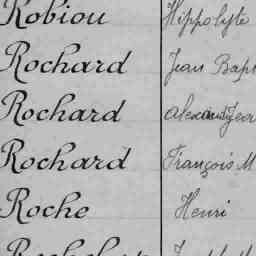 Robiou Hippolyte
Rochard Jean Bapt
Rochard
Rochard François M
Roche Henri